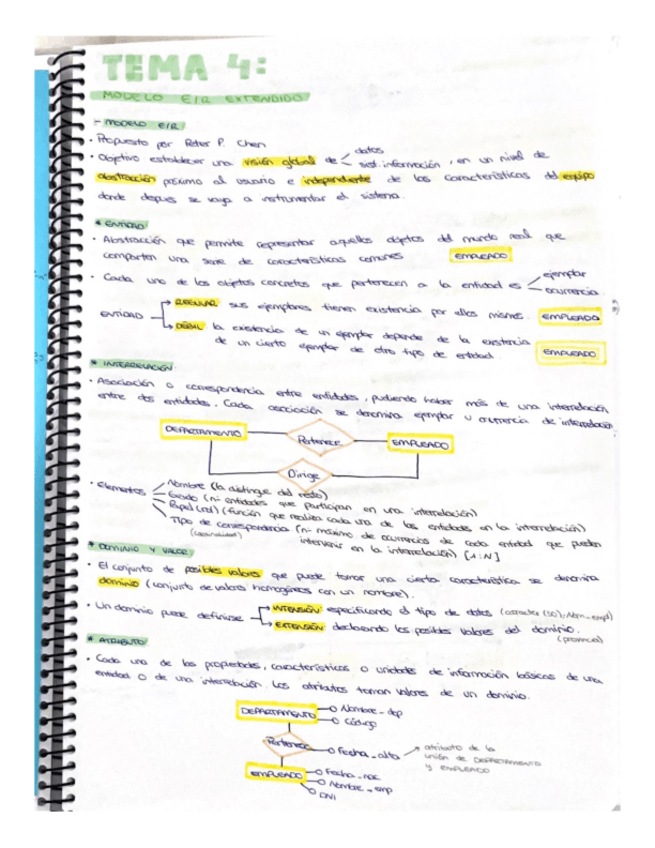 TEMA 4:
MODELO E/R EXTENDIDO
- MODELO E/R
• Propuesto por Peter P. Chen
• Objetivo establecer una visión global de < datos
sist. información, en un nivel de
abstracción próximo al usuario e independiente de las características del equipo
donde depues se vaya a instrumentar el sistema.
* ENTIDAD
• Abstracción que permite representar aquellos objetos del mundo real que
comparten una serie de características comunes EMPLEADO
• Cada uno de los objetos concretos que pertenecen a la entidad es < ejemplar
ocurrencia
ENTIDAD
REGULAR sus ejemplares tienen existencia por ellos mismos. EMPLEADO
DÉBIL la existencia de un ejemplar depende de la existencia
de un cierto ejemplar de otro tipo de entidad EMPLEADO
* INTERRELACIÓN
• Asociación o correspondencia entre entidades, pudiendo haber más de una interrelación
entre dos entidades. Cada asociación se denomina ejemplar u ocurrencia de interrelación
DEPARTAMENTO Pertenece EMPLEADO
Dirige
• Elementos
Nombre (la distingue del resto)
Grado (nº entidades que participan en una interrelación)
Papel (rol) (función que realiza cada una de las entidades en la interrelación)
Tipo de correspondencia (nº máximo de ocurrencias de cada entidad que pueden
(cardinalidad) intervenir en la interrelación) [1:N]
* DOMINIO Y VALOR
• El conjunto de posibles valores que puede tomar una cierta característica se denomina
dominio (conjunto de valores homogéneos con un nombre).
• Un dominio puede definirse
INTENSIÓN especificando el tipo de datos (caracter (30); Nom_emp)
EXTENSIÓN declarando los posibles valores del dominio.
(provincia)
* ATRIBUTO
• Cada una de las propiedades, características o unidades de información básicas de una
entidad o de una interrelación. Los atributos toman valores de un dominio.
DEPARTAMENTO
Nombre_dep
Código
Pertenece
Fecha_alta
atributo de la
unión de DEPARTAMENTO
y EMPLEADO
EMPLEADO
Fecha_nac
Nombre_emp
DNI